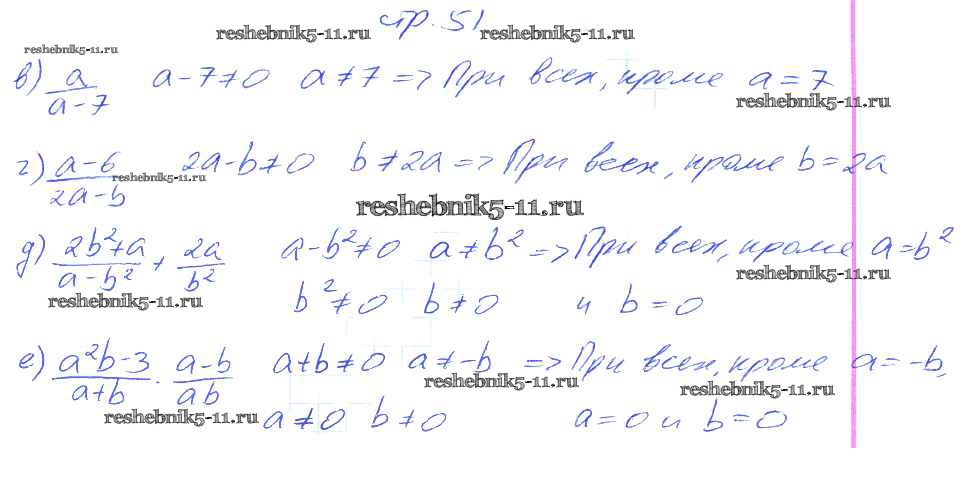 стр. 51
reshebnik5-11.ru reshebnik5-11.ru reshebnik5-11.ru
в) a/(a-7) a-7≠0 a≠7 => При всех, кроме a=7
reshebnik5-11.ru
г) (a-6)/(2a-b) 2a-b≠0 b≠2a => При всех, кроме b=2a
reshebnik5-11.ru
reshebnik5-11.ru
д) (2b²+a)/(a-b²) + 2a/b² a-b²≠0 a≠b² => При всех, кроме a=b²
reshebnik5-11.ru
reshebnik5-11.ru
b²≠0 b≠0 и b=0
е) (a²b-3)/(a+b) · (a-b)/(ab) a+b≠0 a≠-b => При всех, кроме a=-b,
reshebnik5-11.ru reshebnik5-11.ru
reshebnik5-11.ru
a≠0 b≠0 a=0 и b=0